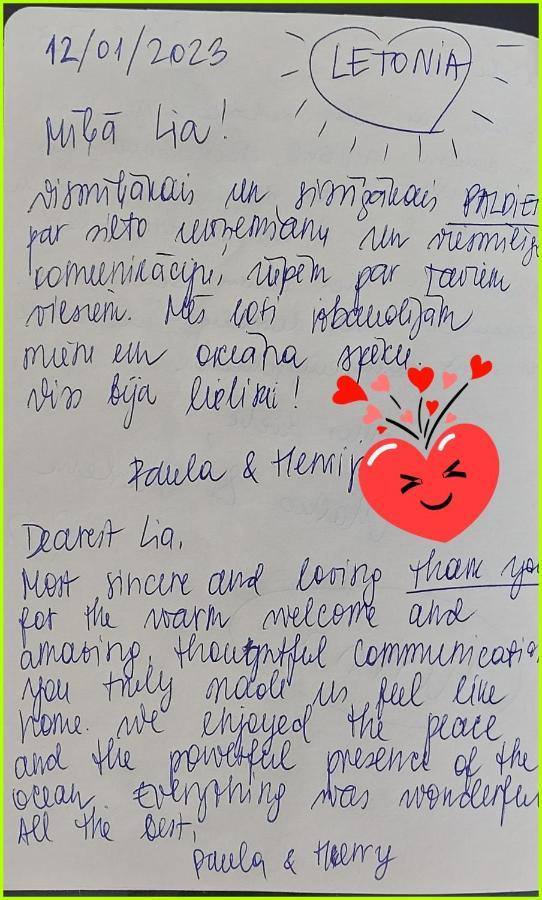 12/01/2023
LETONIA
Mīļā Lia!
vismīļākais un sirsnīgākais PALDIES
par silto uzņemšanu un viesmīlīgo
komunikāciju, rūpēm par taviem
viesiem. Mēs ļoti izbaudījām
mieru un okeāna spēku.
Viss bija lieliski!
Paula &
Dearest Lia,
Most sincere and loving thank you
for the warm welcome and
amazing, thoughtful communication,
you truly made us feel like
home. We enjoyed the peace
and the powerful presence of the
ocean. Everything was wonderful.
All the best,
Paula & Henry